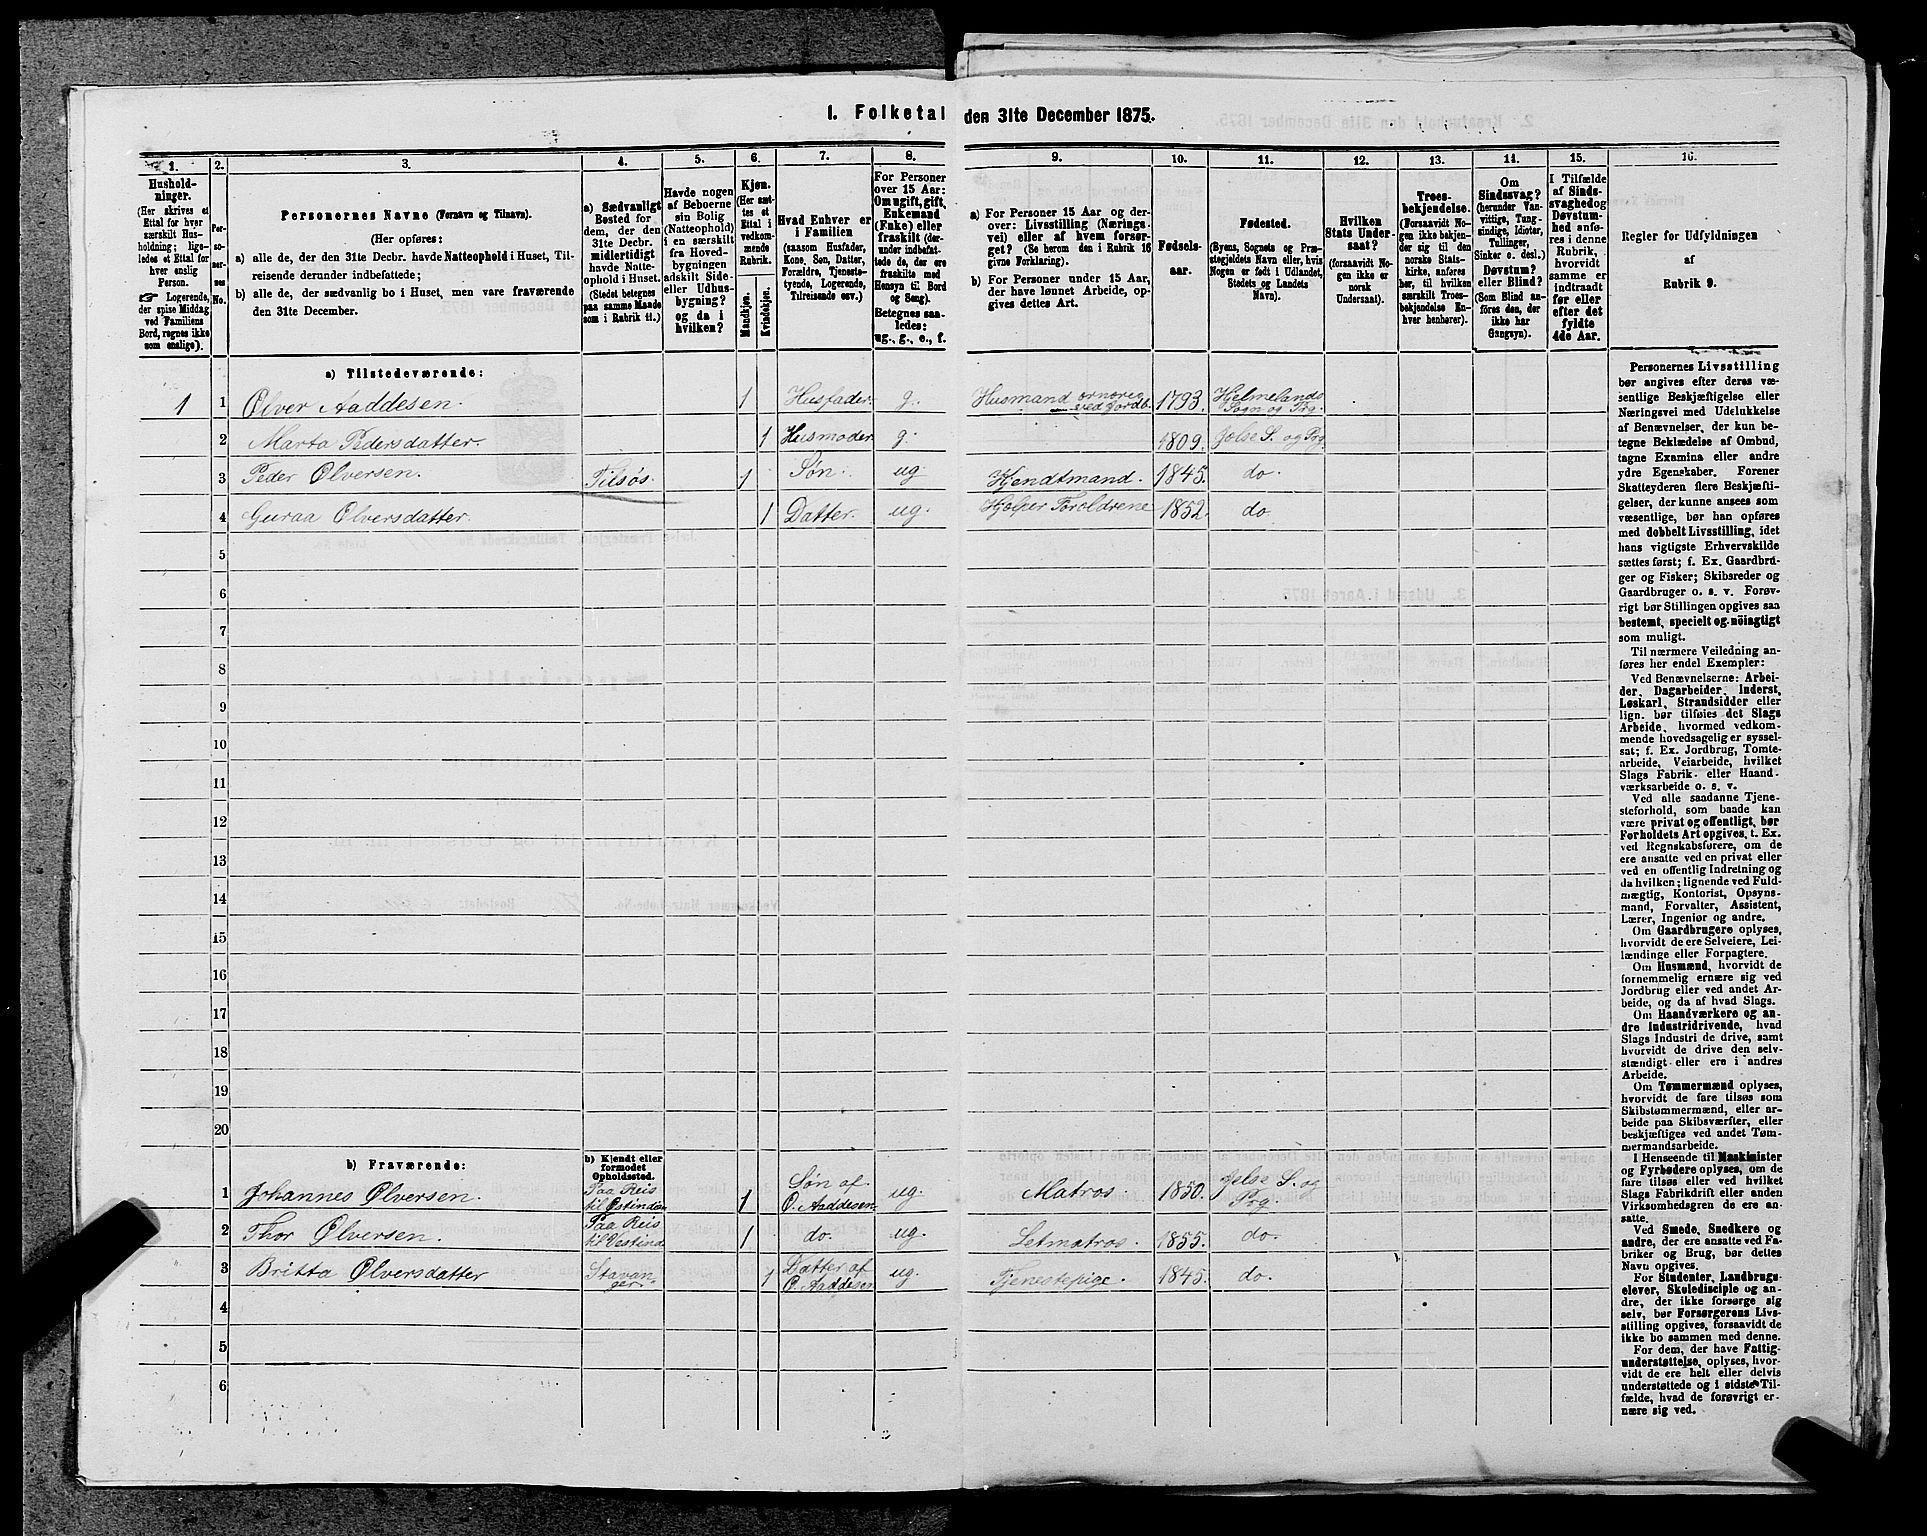 I. Folketal den 31te December 1875.
1. 2. 3. 4. 5. 6. 7. 8. 9. 10. 11. 12. 13. 14. 15. 16.
Hushold-
ninger.
(Her skrives et
Ettal for hver
særskilt Hus-
holdning; lige-
ledes et Ettal for
hver enslig
Person.
☞ Logerende,
der spise Middag
ved Familiens
Bord, regnes ikke
som enslige).
Per-
so-
ner-
nes
No.
Personernes Navne (Fornavn og Tilnavn).
(Her opføres:
a) alle de, der den 31te Decbr. havde Natteophold i Huset, Til-
reisende derunder indbefattede;
b) alle de, der sædvanlig bo i Huset, men vare fraværende
den 31te December.
a) Sædvanligt
Bosted for
dem, der den
31te Decbr.
midlertidigt
havde Natte-
ophold i Huset.
(Stedet betegnes
paa samme Maade
som i Rubrik 11.)
Havde nogen
af Beboerne
sin Bolig
(Natteophold)
i en særskilt
fra Hoved-
bygningen
adskilt Side-
eller Udhus-
bygning?
og da i
hvilken?
Kjøn.
(Her sæt-
tes et
Ettal i
vedkom-
mende
Rubrik.
Mandkjøn.
Kvindekjøn.
Hvad Enhver er
i Familien
(saasom Husfader,
Kone, Søn, Datter,
Forældre, Tjeneste-
tyende, Logerende,
Tilreisende osv.)
For Personer
over 15 Aar:
Om ugift, gift,
Enkemand
(Enke) eller
fraskilt (der-
under indbefat-
tede de, der ere
fraskilte med
Hensyn til Bord
og Seng).
Betegnes saa-
ledes:
ug., g., e., f.
a) For Personer 15 Aar og der-
over: Livsstilling (Nærings-
vei) eller af hvem forsør-
get? (Se herom den i Rubrik 16
givne Forklaring).
b) For Personer under 15 Aar,
der have lønnet Arbeide, op-
gives dettes Art.
Fødsels-
aar.
Fødested.
(Byens, Sognets og Præ-
stegjeldets Navn eller, hvis
Nogen er født i Udlandet,
Stedets og Landets
Navn).
Hvilken
Stats Under-
saat?
(forsaavidt No-
gen ikke er
norsk
Undersaat).
Troes-
bekjendelse.
(Forsaavidt No-
gen ikke bekjen-
der sig til den
norske Stats-
kirke, anføres
her, til hvilken
særskilt Troes-
bekjendelse En-
hver henhører).
Om
Sindssvag?
(herunder Van-
vittige, Tung-
sindige, Idioter,
Tullinger,
Sinker o. desl.)
Døvstum?
eller Blind?
(Som Blind an-
føres den, der
ikke har
Gangsyn).
I Tilfælde
af Sinds-
svaghed og
Døvstum-
hed anfø-
res i denne
Rubrik,
hvorvidt
samme er
indtraadt
før eller
efter det
fyldte
4de Aar.
Regler for Udfyldningen
af
Rubrik 9.
a) Tilstedeværende:
1 1 Ølver Aaddesen. 1 Husfader g. Husmand ernæres ved Jordb. 1793. Hjelmelands Sogn og Prg.
2 Marta Pedersdatter. 1 Husmoder g. 1809. Jelse S. og Prg
3 Peder Ølversen. Tilsøs. 1 Søn. ug 1845. do.
4 Guraa Ølversdatter. 1 Datter. ug. Hjelper Foroldrene 1852. do.
5
6
7
8
9
10
11
12
13
14
15
16
17
18
19
20
b) Fraværende:
b) Kjendt eller
formodet
Opholdssted.
1 Johannes Ølversen. Paa Reis til Østindien 1 Søn af O. Aaddesen ug. Matros. 1850. Jelse S. og Prg
2 Thor Ølversen. Paa Reis til Vestind. 1 do. ug. Letmatros. 1855. do.
3 Britta Ølversdatter Stavanger. 1 Datter af O. Aaddesen ug. Tjenestepige. 1845. do.
4
5
6
Personernes Livsstilling
bør angives efter deres væ-
sentlige Beskjæftigelse eller
Næringsvei med Udelukkelse
af Benævnelser, der kun be-
tegne Beklædelse af Ombud,
tagne Examina eller andre
ydre Egenskaber. Forener
Skatteyderen flere Beskjæfti-
gelser, der kunne ansees som
væsentlige, bør han opføres
med dobbelt Livsstilling, idet
hans vigtigste Erhvervskilde
sættes først; f. Ex. Gaardbru-
ger og Fisker; Skibsreder og
Gaardbruger o. s. v. Forøv-
rigt bør Stillingen opgives saa
bestemt, specielt og nöiagtigt
som muligt.
Til nærmere Veiledning an-
føres her endel Exempler:
Ved Benævnelserne: Arbei-
der, Dagarbeider, Inderst,
Løskarl, Strandsidder eller
lign. bør tilføies det Slags
Arbeide, hvormed vedkom-
mende hovedsagelig er syssel-
sat; f. Ex. Jordbrug, Tomte-
arbeide, Veiarbeide, hvilket
Slags Fabrik- eller Haand-
værksarbeide o. s. v.
Ved alle saadanne Tjene-
steforhold, som baade kan
være privat og offentligt, bør
Forholdets Art opgives, t. Ex.
ved Regnskabsførere, om de
ere ansatte ved en privat eller
ved en offentlig Indretning og
da hvilken; lignende ved Fuld-
mægtig, Kontorist, Opsyns-
mand, Forvalter, Assistent,
Lærer, Ingeniør og andre.
Om Gaardbrugere oplyses,
hvorvidt de ere Selveiere, Lei-
lændinge eller Forpagtere.
Om Husmænd, hvorvidt de
fornemmelig ernære sig ved
Jordbrug eller ved andet Ar-
beide, og da af hvad Slags.
Om Haandværkere og an-
dre Industridrivende, hvad
Slags Industri de drive, samt
hvorvidt de drive den selv-
stændigt eller ere i andres
Arbeide.
Om Tømmermænd oplyses,
hvorvidt de fare tilsøs som
Skibstømmermænd, eller ar-
beide paa Skibsværfter, eller
beskjæftiges ved andet Tøm-
mermandsarbeide.
I Henseende til Maskinister
og Fyrbødere oplyses, om de
fare tilsøs eller ved hvilket
Slags Fabrikdrift eller anden
Virksomhedsgren de ere an-
satte.
Ved Smede, Snedkere og
andre, der ere ansatte ved Fa-
briker og Brug, bør dettes
Navn opgives.
For Studenter, Landbrugs-
elever, Skoledisciple og an-
dre, der ikke forsørge sig
selv, bør Forsørgerens Livs-
stilling opgives, forsaavidt de
ikke bo sammen med denne.
For dem, der have Fattig-
understøttelse, oplyses, hvor-
vidt de ere helt eller delvis
understøttede og i sidste Til-
fælde, hvad de forøvrigt er-
nære sig ved.